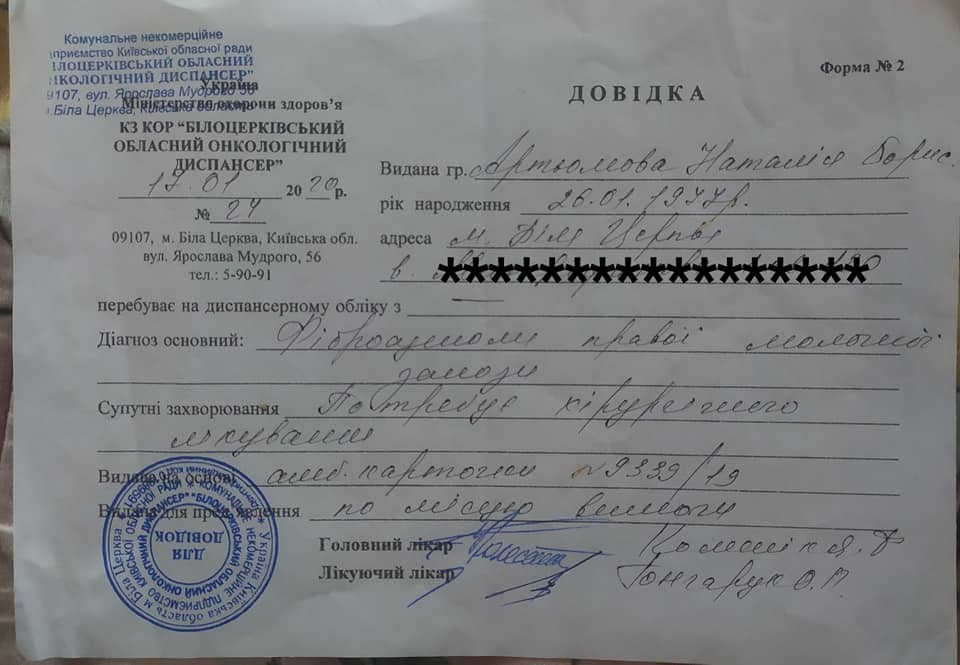 Комунальне некомерційне
приємство Київської обласної ради
ІЛОЦЕРКІВСЬКИЙ ОБЛАСНИЙ
НКОЛОГІЧНИЙ ДИСПАНСЕР"
9107, вул. Ярослава Мудрого 56
.Біла Церква, Київська область
Україна
Міністерство охорони здоров'я
КЗ КОР "БІЛОЦЕРКІВСЬКИЙ
ОБЛАСНИЙ ОНКОЛОГІЧНИЙ
ДИСПАНСЕР"
17.01 2020р.
№ 24
09107, м. Біла Церква, Київська обл.
вул. Ярослава Мудрого, 56
тел.: 5-90-91
Форма № 2
ДОВІДКА
Видана гр. Артюмова Наталія Борис.
рік народження 26.01.1977р.
адреса м. Біла Церква
в. ******************
перебуває на диспансерному обліку з —
Діагноз основний: Фіброаденоми правої молочної
залози
Супутні захворювання Потребує хірургічного
лікування
Видано на основі амб. карточки №9339/19
Видана для пред'явлення по місцю вимоги
Головний лікар
Лікуючий лікар Гончарук О.П.
Україна Київська область м Біла Церква
КОМУНАЛЬНЕ НЕКОМЕРЦІЙНЕ ПІДПРИЄМСТВО КИЇВСЬКОЇ ОБЛАСНОЇ РАДИ
"БІЛОЦЕРКІВСЬКИЙ ОБЛАСНИЙ ОНКОЛОГІЧНИЙ ДИСПАНСЕР"
ДЛЯ
ДОВІДОК